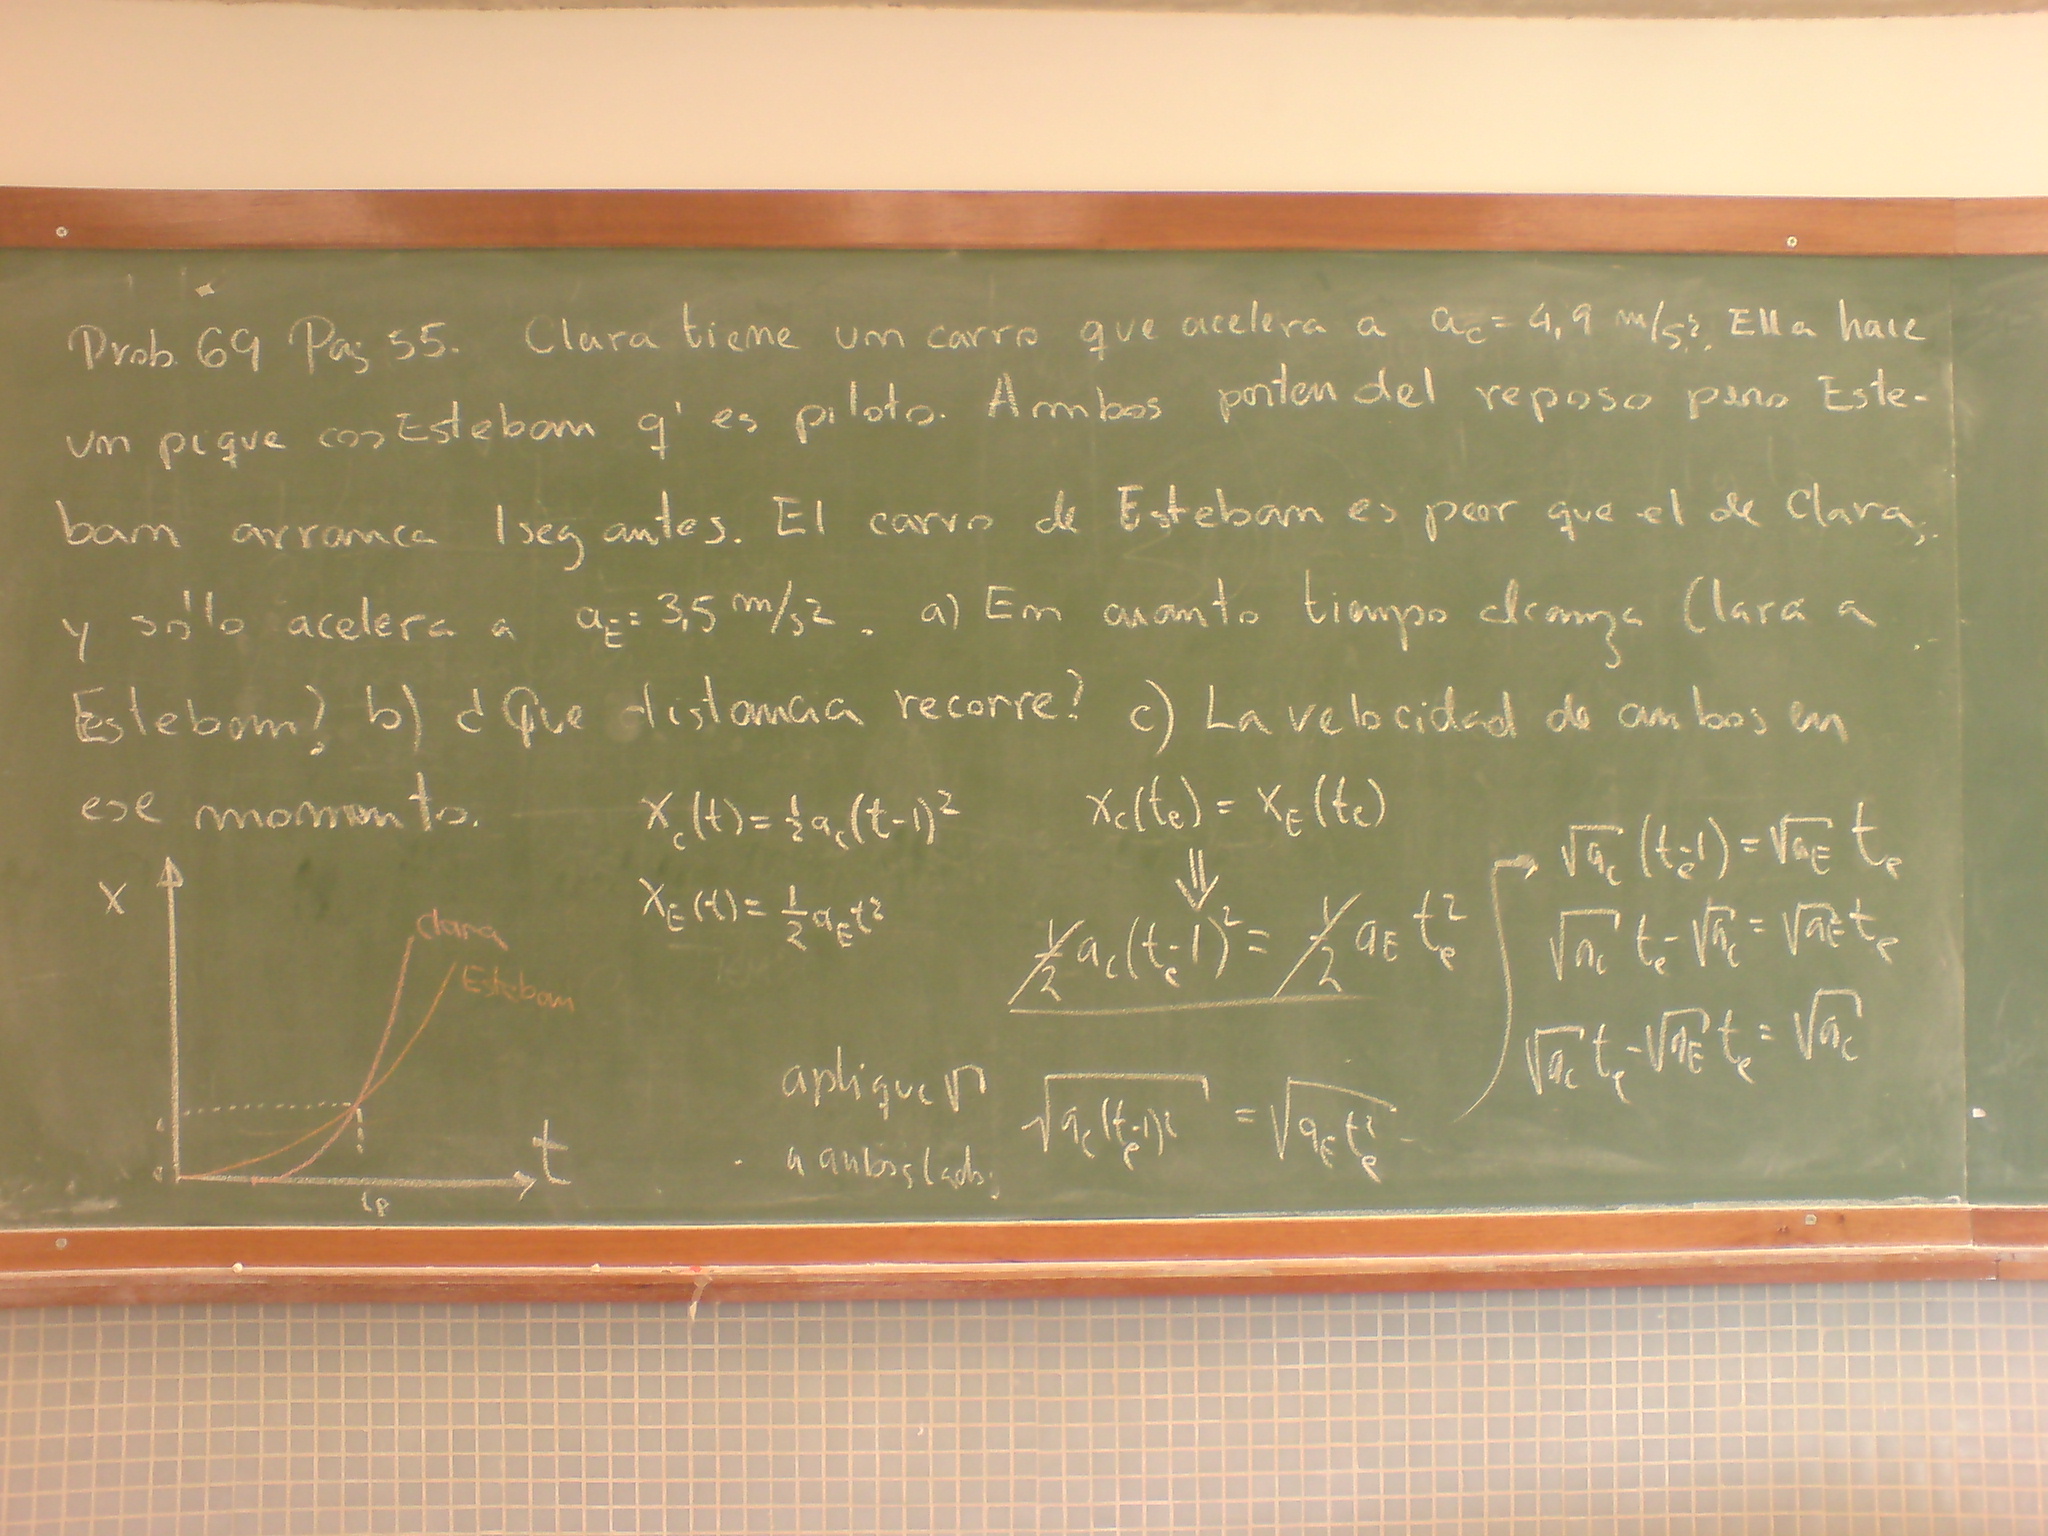 Prob. 69 Pag 55. Clara tiene un carro que acelera a a_c = 4,9 m/s². Ella hace
un pique con Esteban q' es piloto. Ambos parten del reposo pero Este-
ban arranca 1seg antes. El carro de Esteban es peor que el de Clara,
y sólo acelera a a_E = 3,5 m/s². a) En cuanto tiempo alcanza Clara a
Esteban? b) ¿Que distancia recorre? c) La velocidad de ambos en
ese momento.
x_c(t) = ½ a_c (t-1)²
x_E(t) = ½ a_E t²
x_c(t_e) = x_E(t_e)
⇓
½ a_c (t_e-1)² = ½ a_E t_e²
aplique √
a ambos lados
√(a_c (t_e-1)²) = √(a_E t_e²)
√a_c (t_e-1) = √a_E t_e
√a_c t_e - √a_c = √a_E t_e
√a_c t_e - √a_E t_e = √a_c
x
Clara
Esteban
t
t_e